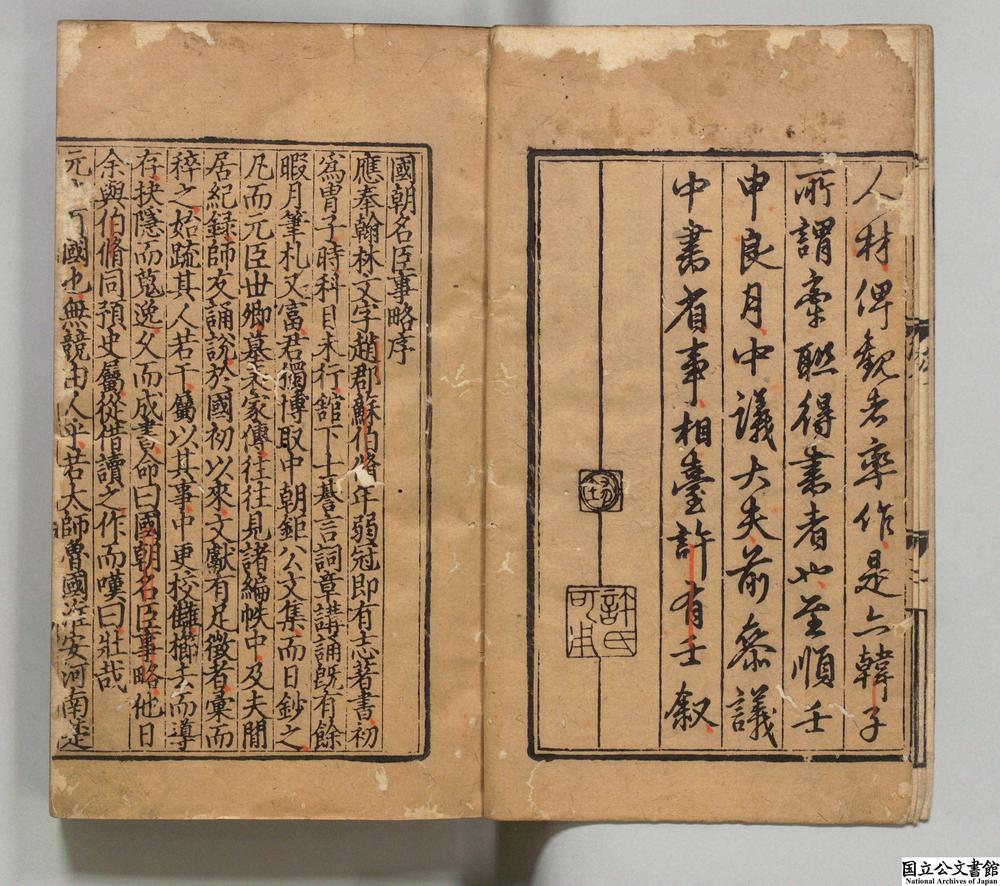 人材俾觀者率作是亦韓子
所謂牽聯得書者也至順壬
申良月中議大夫前參議
中書省事相臺許有壬叙
許氏可用
國朝名臣事略序
應奉翰林文字趙郡蘇伯脩年弱冠即有志著書初
爲胄子時科目未行館下士朞言詞章講誦旣有餘
暇月筆札又富君獨博取中朝鉅公文集而日鈔之
凡而元臣世卿墓表家傳往往見諸編帙中及夫閒
居紀録師友誦說於國初以來文獻有足徵者彙而
稡之始疏其人若干屬以其事中更校讎櫛去而導
存抉隱而蒐逸久而成書命曰國朝名臣事略他日
余與伯脩同預史屬從借讀之作而嘆曰壯哉
元國也無競由人乎若太師魯國淮安河南楚
国立公文書館
National Archives of Japan